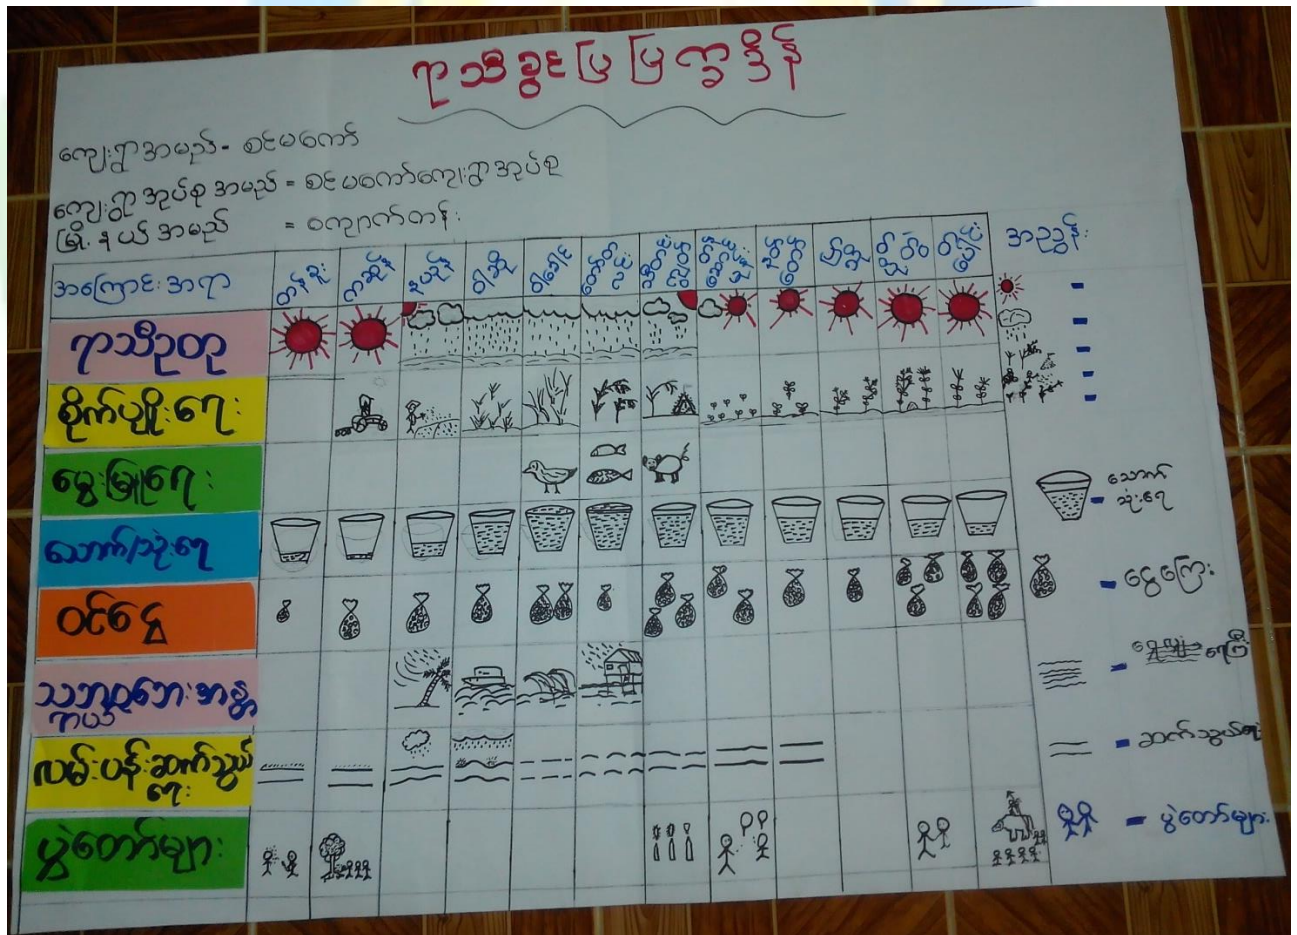 ရာသီခွင်ပြပြက္ခဒိန်
ကျေးရွာအမည် - စင်မကော်
ကျေးရွာအုပ်စုအမည် = စင်မကော်ကျေးရွာအုပ်စု
မြို့နယ်အမည် = ကျောက်တန်း
အကြောင်းအရာ တန်ခူး ကဆုန် နယုန် ဝါဆို ဝါခေါင် တော်သလင်း သီတင်းကျွတ် တန်ဆောင်မုန်း နတ်တော် ပြာသို တပို့တွဲ တပေါင်း အညွှန်း
ရာသီဥတု
စိုက်ပျိုးရေး
မွေးမြူရေး
သောက်/သုံးရေ
သောက်သုံးရေ
ဝင်ငွေ
ငွေကြေး
သဘာဝဘေးအန္တရာယ်
လမ်းပန်းဆက်သွယ်ရေး
ဆက်သွယ်ရေး
ပွဲတော်များ
ပွဲတော်များ